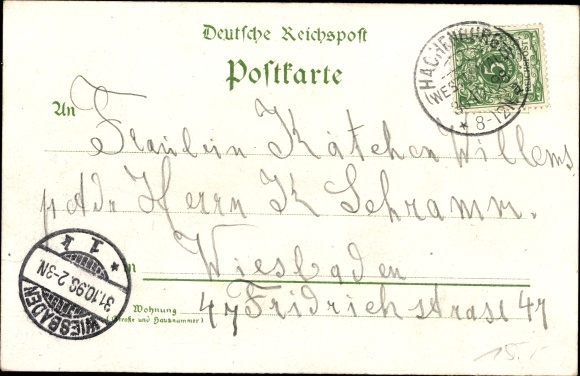 Deutsche Reichspost
Postkarte
HACHENBURG
(WESTERWALD)
* 8-12V.
An
Fräulein Kätchen Willems
p Adr Herrn K Schramm.
in Wiesbaden
Wohnung
(Straße und Hausnummer)
47 Fridrichstrase 47
WIESBADEN
31.10.96. 2-3N.
* 1 k
15.-